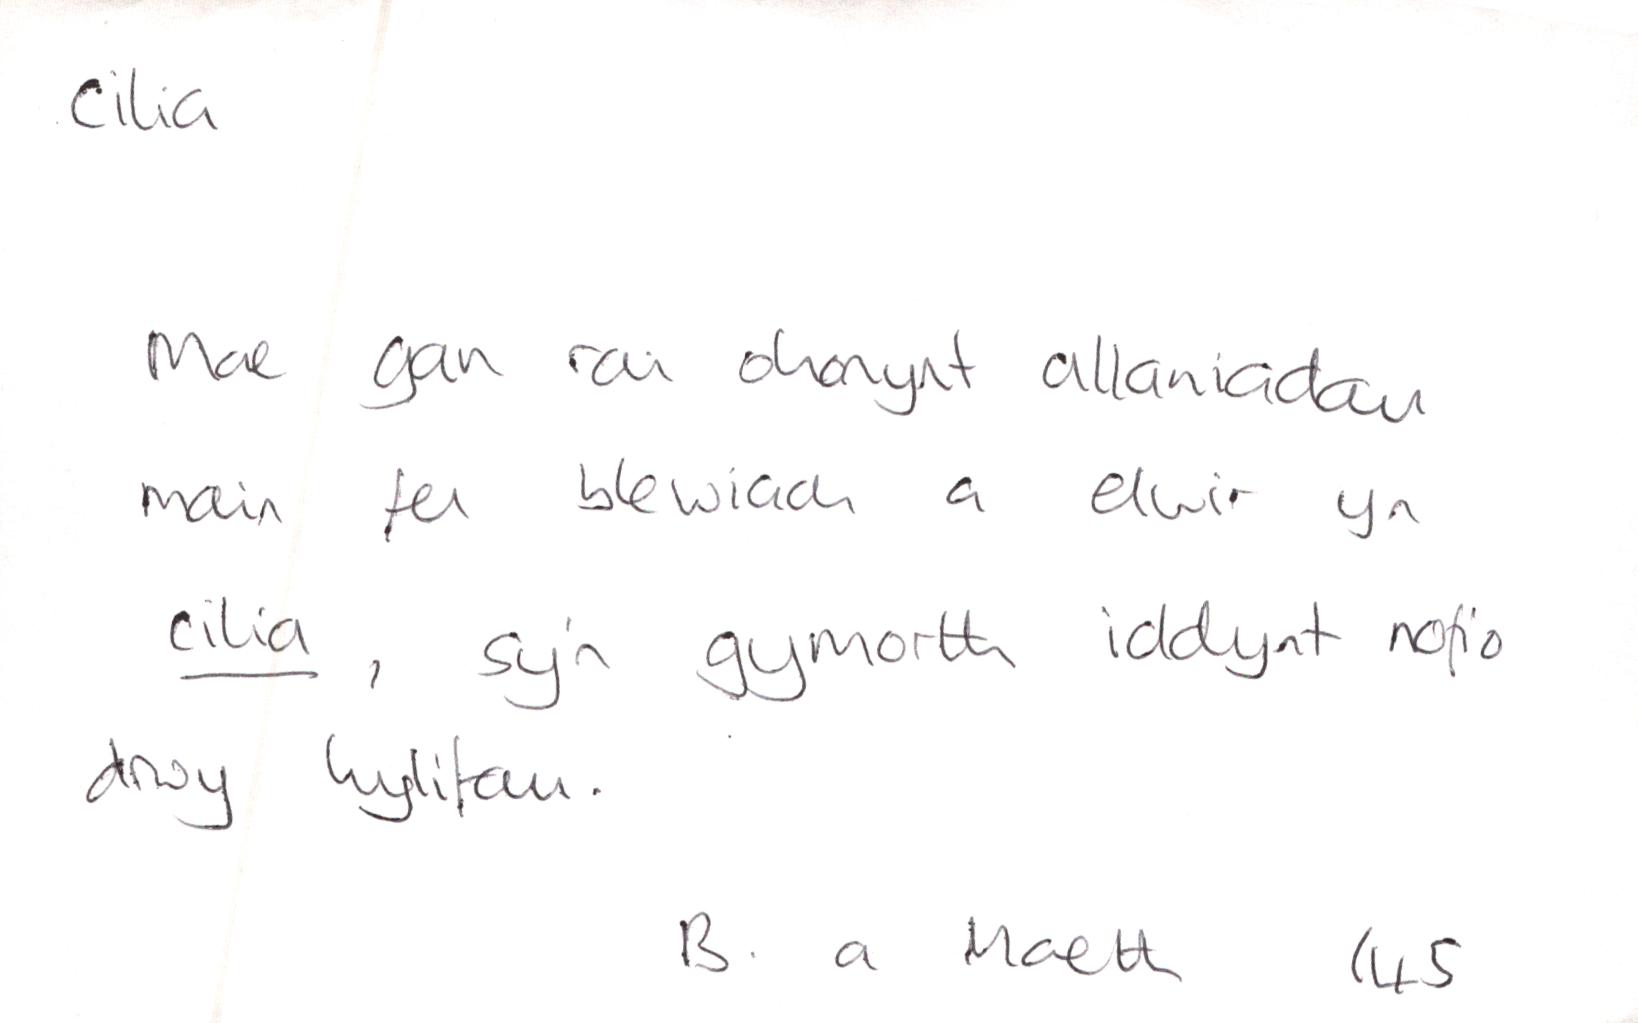 cilia
Mae gan rai ohonynt allaniadau
main fel blewiach a elwir yn
cilia, sy'n gymorth iddynt nofio
drwy hylifau.
B. a Maeth 145